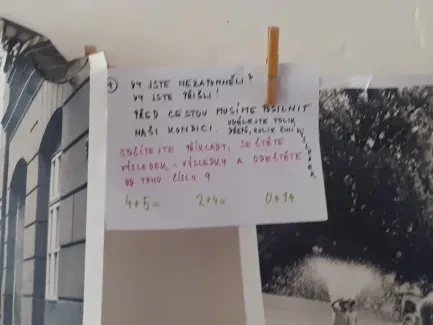 ① VY JSTE NEZAPOMNĚLI?
VY JSTE PŘIŠLI!
PŘED CESTOU MUSÍME POSILNIT
NAŠI KONDICI. UDĚLEJTE TOLIK
DŘEPŮ, KOLIK ČINÍ VÝSLEDEK.
SEČTĚTE
VÝSLEDEK - VÝSLEDKY A ODEČTĚTE
OD TOHO ČÍSLO 9
4+5= 2+4= 0+14